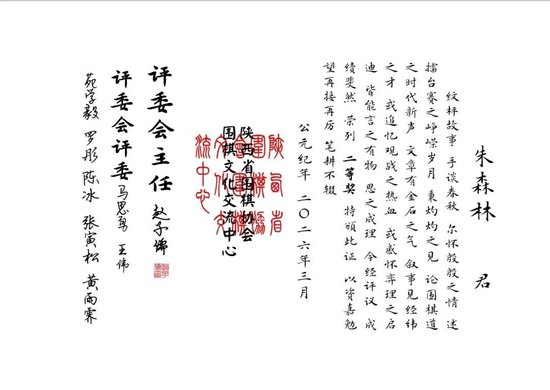 朱森林 君
纹枰故事 手谈春秋 尔怀殷殷之情 述
擂台赛之峥嵘岁月 秉灼灼之见 论围棋道
之时代新声 文章有金石之气 叙事见经纬
之才 或追忆观战之热血 或感怀弈理之启
迪 皆能言之有物 思之成理 今经评议 成
绩斐然 荣列 二等奖 特颁此证 以资嘉勉
望再接再厉 笔耕不辍
公元纪年 二〇二六年三月
陕西省围棋协会
围棋文化交流中心
评委会主任 赵子
评委会评委 马思 王伟
苑学毅 罗彤 陈冰 张寅松 黄雨霖